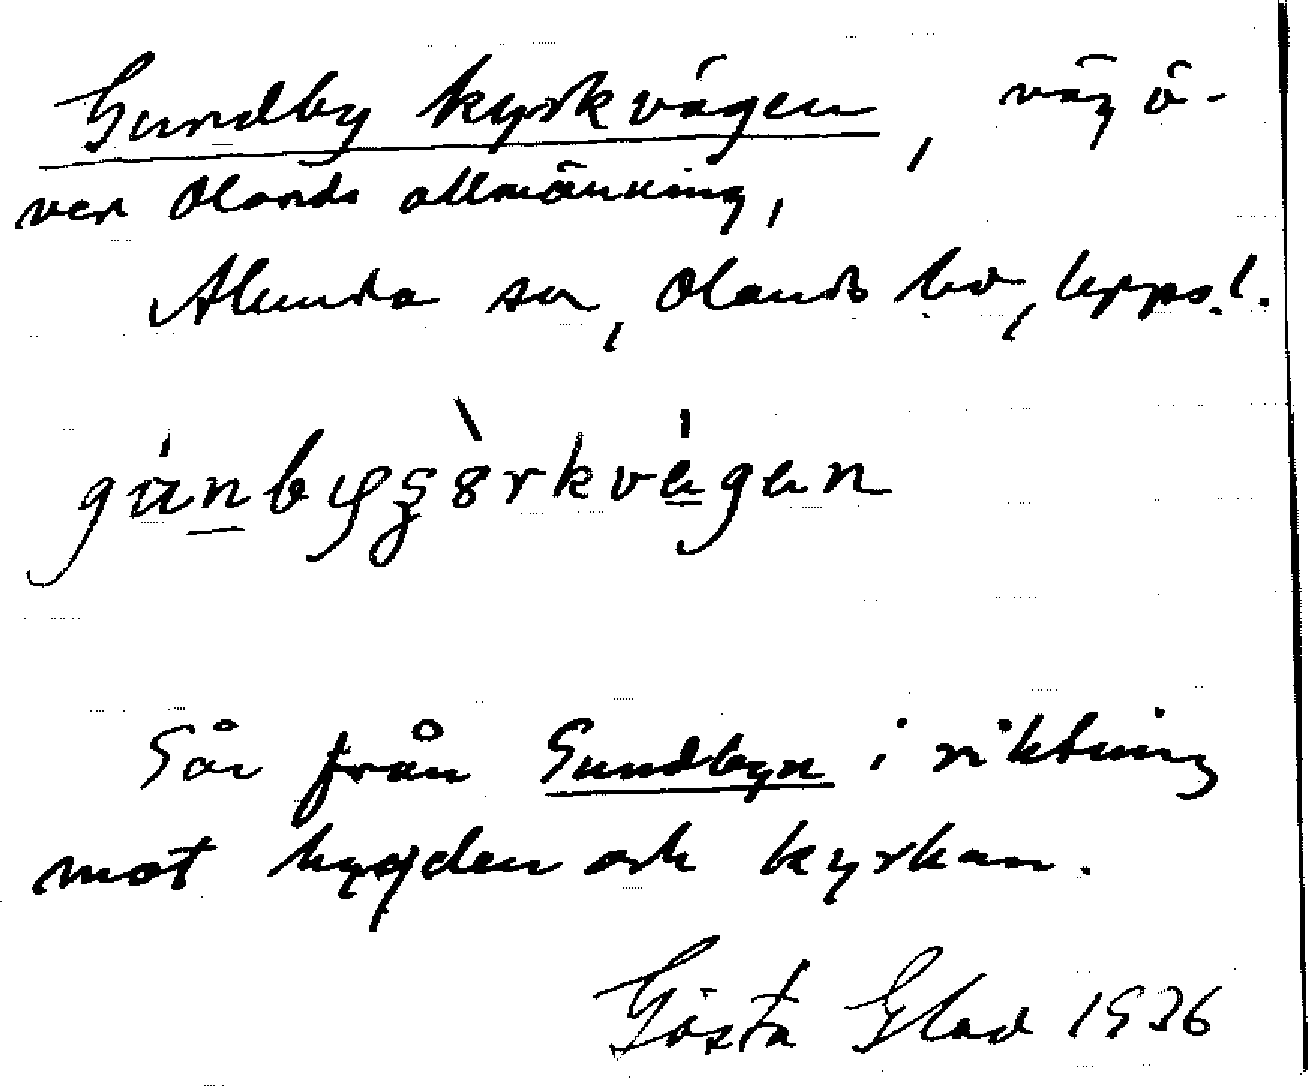 Gundby kyrkvägen, väg ö-
ver Olands allmänning,
Alunda sn, Olands hd, Uppsl.
Går från Gundbyn i riktning
mot bygden och kyrkan.
Gösta Glad 1936